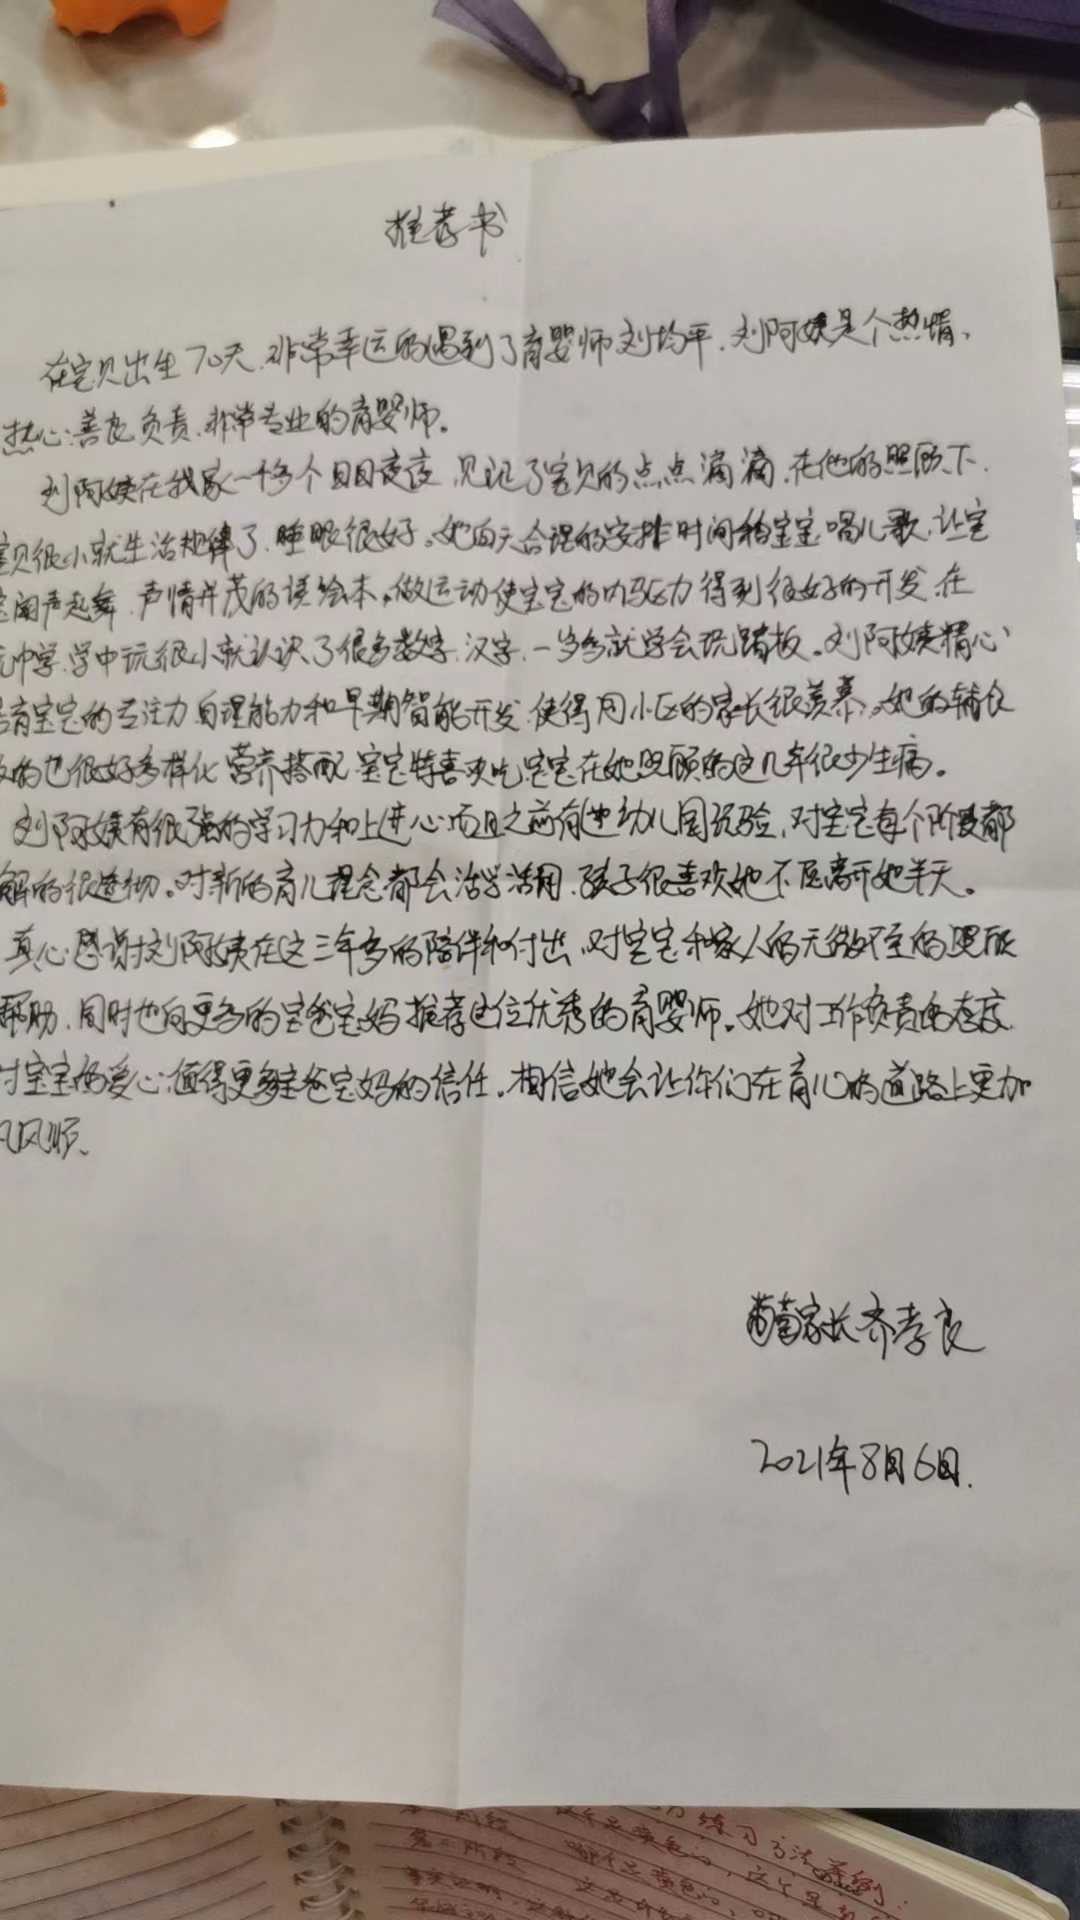 推荐书
在宝贝出生70天,非常幸运的遇到了育婴师刘均平,刘阿姨是个热情、
热心、善良、负责、非常专业的育婴师。
刘阿姨在我家一千多个日日夜夜,见证了宝贝的点点滴滴,在他的照顾下,
宝贝很小就生活规律了,睡眠很好。她白天合理的安排时间和宝宝唱儿歌,让宝
宝闻声起舞,声情并茂的读绘本,做运动使宝宝的内驱力得到很好的开发,在
玩中学,学中玩很小就认识了很多数字、汉字,一岁多就学会玩踏板。刘阿姨精心
培育宝宝的专注力、自理能力和早期智能开发,使得同小区的家长很羡慕。她的辅食
做的也很好多样化,营养搭配,宝宝特喜欢吃,宝宝在她照顾的这几年很少生病。
刘阿姨有很强的学习力和上进心,而且之前有过幼儿园经验,对宝宝每个阶段都
解的很透彻。对新的育儿理念都会活学活用,孩子很喜欢她不愿离开她半天。
真心感谢刘阿姨在这三年多的陪伴和付出,对宝宝和家人的无微不至的照顾
帮助,同时也向更多的宝爸宝妈推荐这位优秀的育婴师。她对工作负责的态度,
对宝宝的爱心,值得更多宝爸宝妈的信任。相信她会让你们在育儿的道路上更加
风顺、
家长齐孝良
2021年8月6日.
练习方法
第二阶段